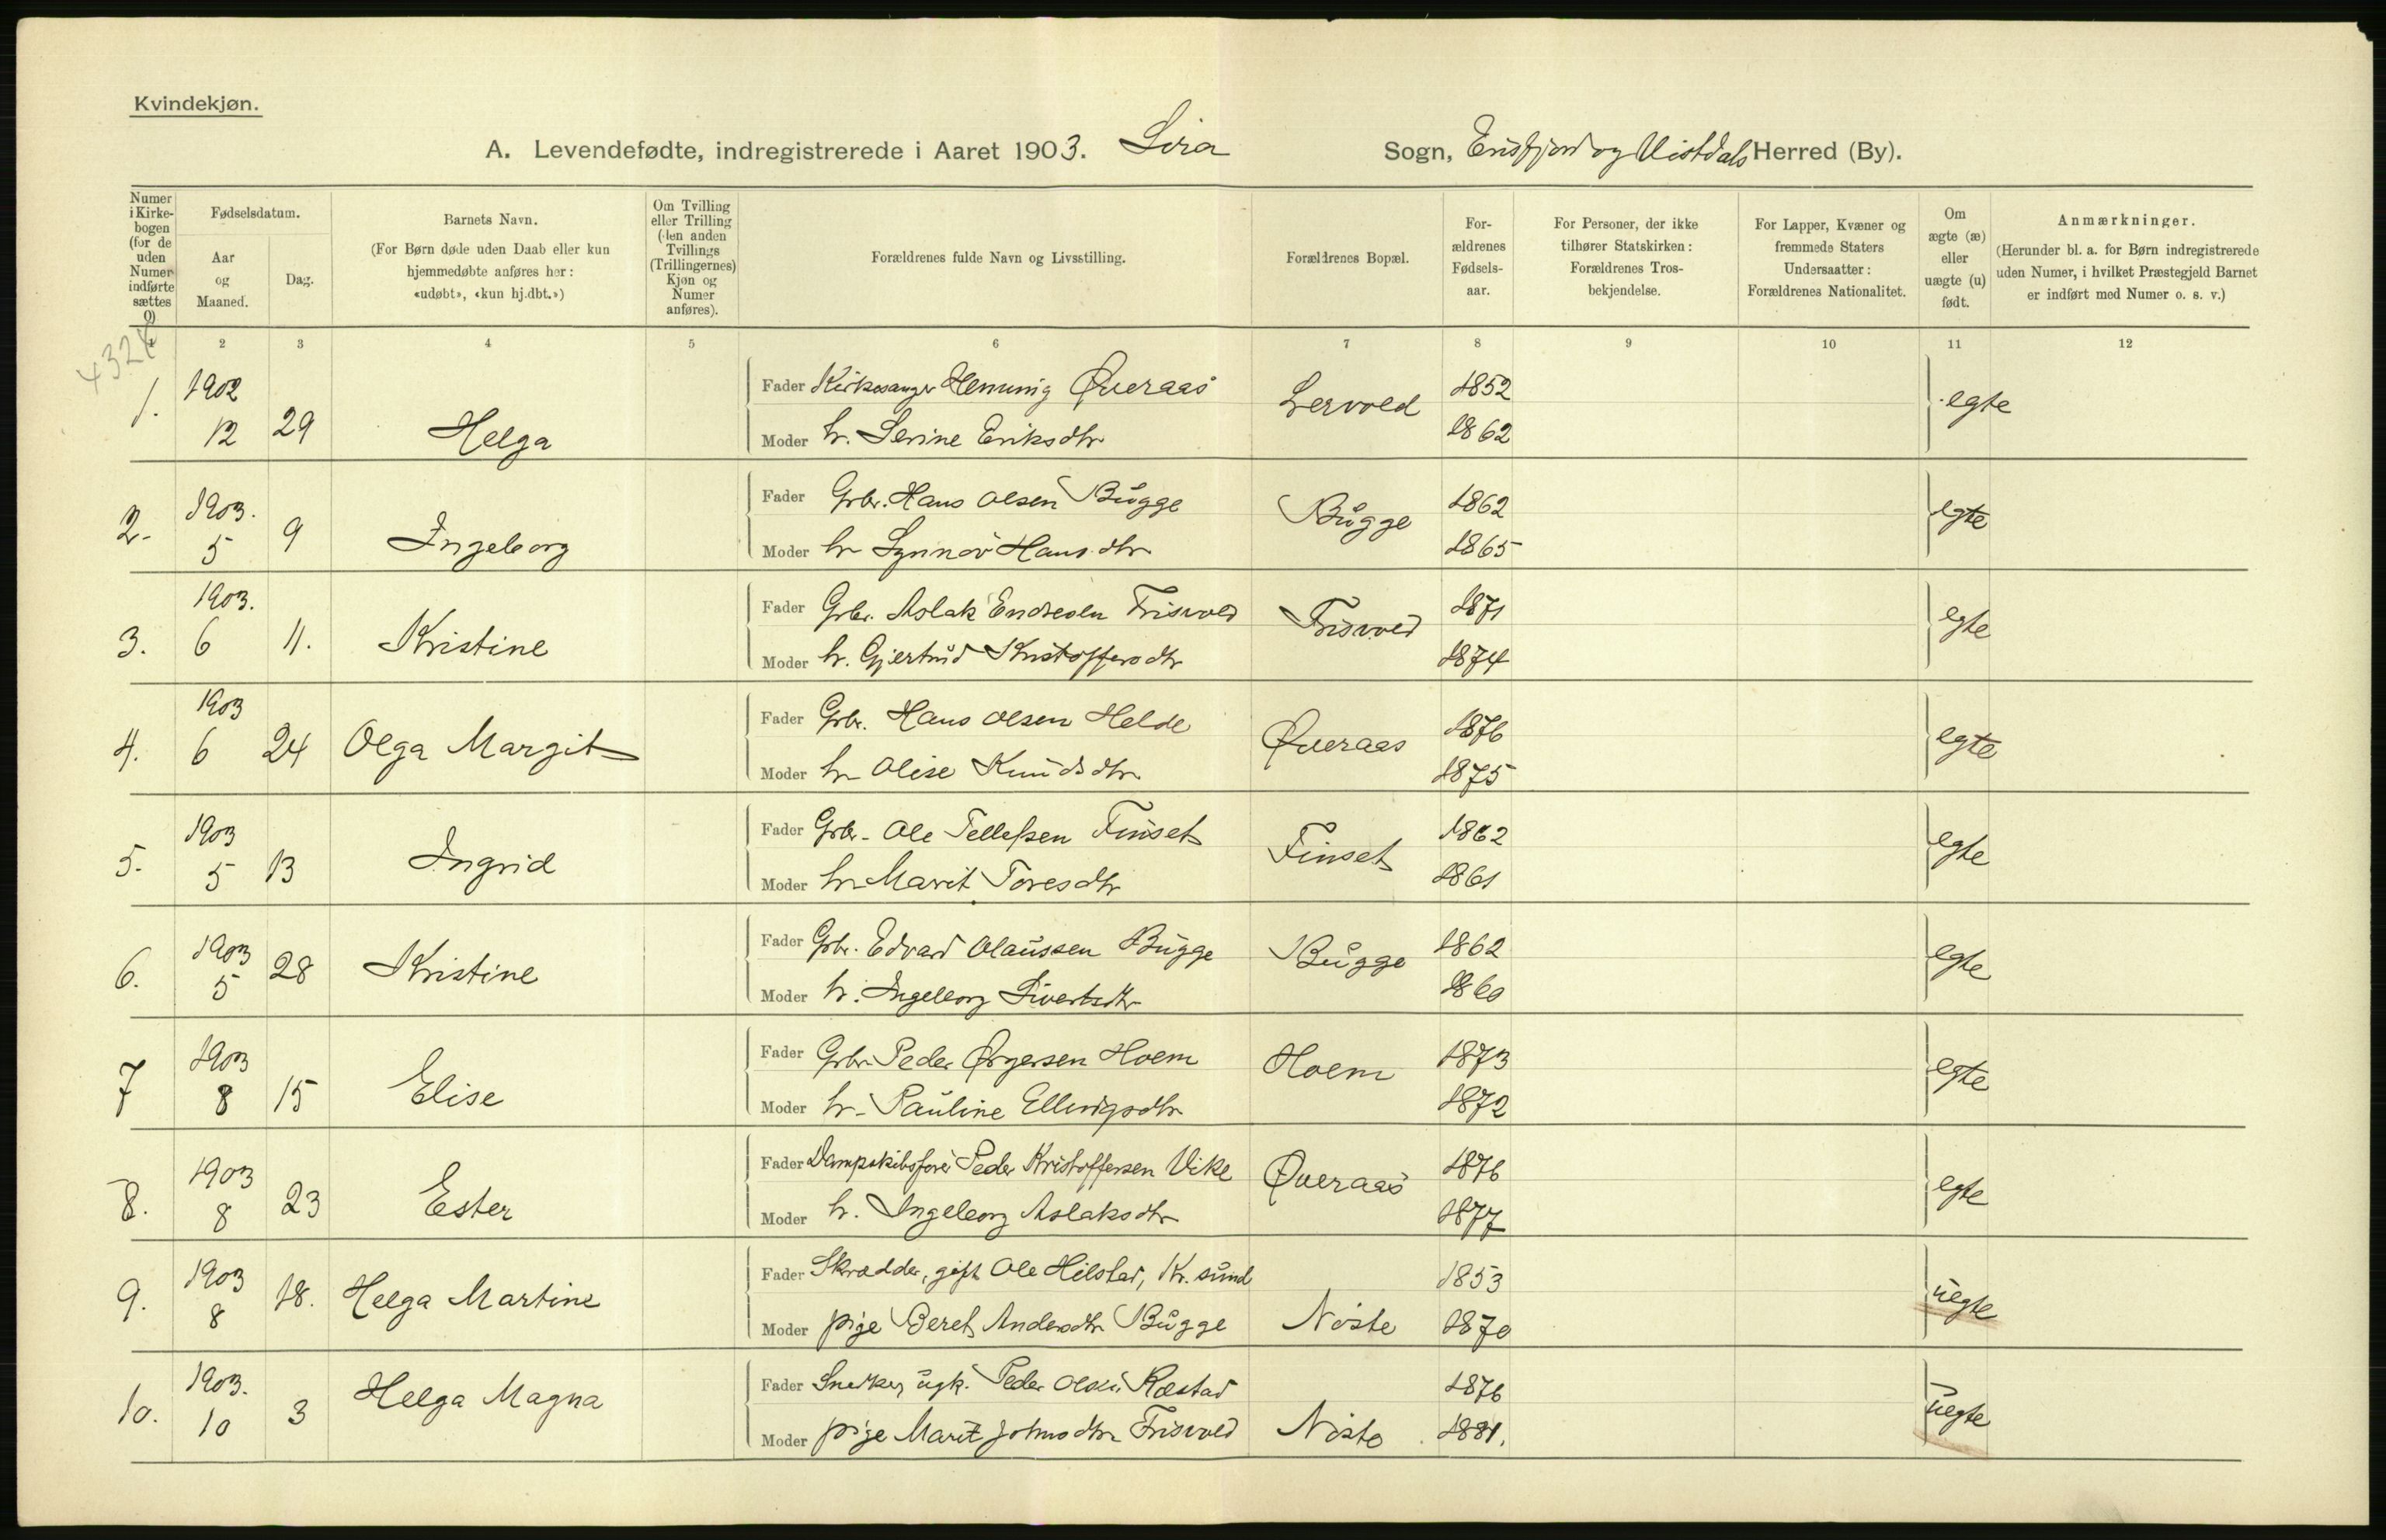 Kvindekjøn.
A. Levendefødte, indregistrerede i Aaret 1903. Sira Sogn, Erisfjord og Vistdals Herred (By).
Numer i Kirke-bogen (for de uden Numer indførte sættes 0)
Fødselsdatum.
Aar og Maaned.
Dag.
Barnets Navn.
(For Børn døde uden Daab eller kun hjemmedøbte anføres her: «udøbt», «kun hj.dbt.»)
Om Tvilling eller Trilling (den anden Tvillings (Trillingernes) Kjøn og Numer anføres).
Forældrenes fulde Navn og Livsstilling.
Forældrenes Bopæl.
For-ældrenes Fødsels-aar.
For Personer, der ikke tilhører Statskirken: Forældrenes Tros-bekjendelse.
For Lapper, Kvæner og fremmede Staters Undersaatter: Forældrenes Nationalitet.
Om ægte (æ) eller uægte (u) født.
Anmærkninger.
(Herunder bl. a. for Børn indregistrerede uden Numer, i hvilket Præstegjeld Barnet er indført med Numer o. s. v.)
1 2 3 4 5 6 7 8 9 10 11 12
1. 1902 12 29 Helga Fader Kirkesanger Henning Øveraas Lervold 1852 egte
Moder h. Serine Eriksdtr 1862
2. 1903. 5 9 Ingeborg Fader Grbr. Hans Olsen Bugge Bugge 1862 egte
Moder h. Synnøv Hansdtr 1865
3. 1903. 6 11. Kristine Fader Grbr. Aslak Endresen Frisvold Frisvold 1871 egte
Moder h. Gjertrud Kristoffersdtr 1874
4. 1903 6 24 Olga Margit Fader Grbr. Hans Olsen Helde Øveraas 1876 egte
Moder h. Olise Knudsdtr 1875
5. 1903 5 13 Ingrid Fader Grbr. Ole Tellefsen Finset Finset 1862 egte
Moder h. Marit Toresdtr 1861
6. 1903 5 28 Kristine Fader Grbr. Edvard Olaussen Bugge Bugge 1862 egte
Moder h. Ingeborg Sivertsdtr 1860
7 1903 8 15 Elise Fader Grbr. Peder Ørgersen Hoem Hoem 1873 egte
Moder h. Pauline Ellingsdtr 1872
8. 1903 8 23 Ester Fader Dampskibsfører Peder Kristoffersen Vike Øveraas 1876 egte
Moder h. Ingeborg Aslaksdtr 1877
9. 1903 8 18. Helga Martine Fader Skrædder, gift Ole Hilstad, Kr. sund 1853 uegte
Moder pige Beret Andersdtr Bugge Nøste 1870
10. 1903. 10 3 Helga Magna Fader Snedker, ugk. Peder Olsen Røstad 1876 uegte
Moder pige Marit Johnsdtr Frisvold Nøste 1881.